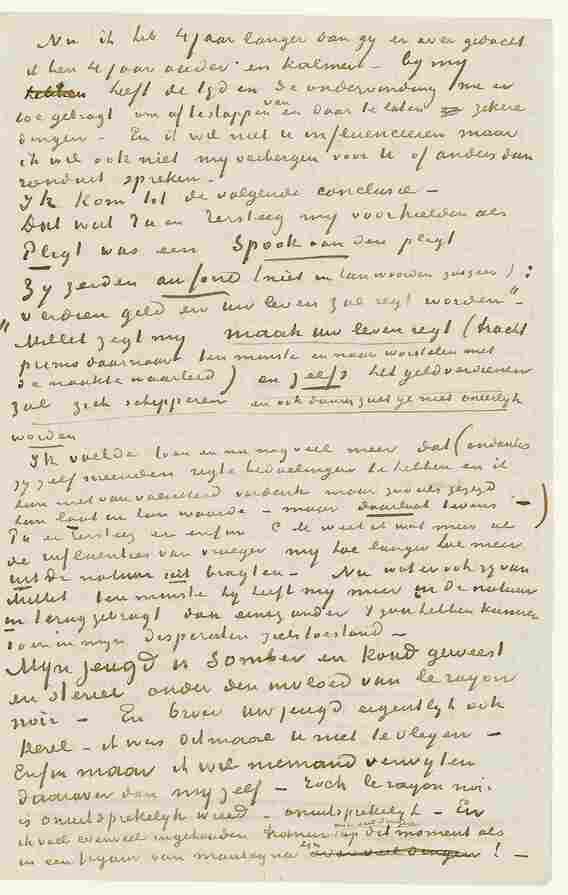 Nu ik heb 4 jaar langer dan gy er over gedacht
ik ben 4 jaar ouder en kalmer – by my
hebben heeft de tyd en de ondervinding me er
toe gebragt om af te stappen van en daar te laten zekere
dingen – En ik wil niet U influenceeren maar
ik wil ook niet my verbergen voor U of anders dan
ronduit spreken. –
Ik kom tot de volgende conclusie –
Dat wat Pa en Tersteeg my voorhielden als
Pligt was een Spook van den pligt
Zy zeiden au fond (niet in hun woorden zoozeer) :
„verdien geld en uw leven zal regt worden” –
Millet zegt my maak uw leven regt (tracht
primo daarnaar ten minste en naar worstelen met
de naakte waarheid) en zelfs het geldverdienen
zal zich schipperen en ook daarin zult ge niet oneerlyk
worden
Ik voelde toen en nu nog veel meer dat (ondanks
zy zelf meenden regte bedoelingen te hebben en ik
hen niet van valschheid verdenk maar zooals gezegd
hen laat in hun waarde – maar daarlaat tevens –)
Pa en Tersteeg en enfin C. M. weet ik wat meer al
de influenties van vroeger my hoe langer hoe meer
uit de natuur uit bragten – Nu wat er ook zy van
Millet ten minste hy heeft my meer in de natuur
in teruggebragt dan eenig ander 't zou hebben kunnen
toen in mijn desperaten zielstoestand –
Mijn jeugd is somber en koud geweest
en steriel onder den invloed van le rayon
noir – En broer uw jeugd eigentlyk ook
Kerel – ik was ditmaal U niet te vleyen –
Enfin maar ik wil niemand verwyten
daarover dan my zelf – Toch le rayon noir
is onuitsprekelyk wreed – onuitsprekelyk – En
ik voel evenveel ingehouden tranen op dit moment als
in een figuur van Monteyne zyn over veel dingen ! –